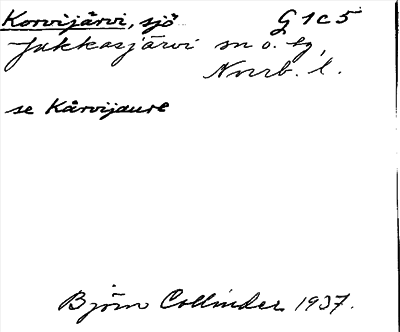 Korvijärvi, sjö G 1 c 5
Jukkasjärvi sn o. tg,
Norrb. l.
se Kårvijaure
Björn Collinder 1937.